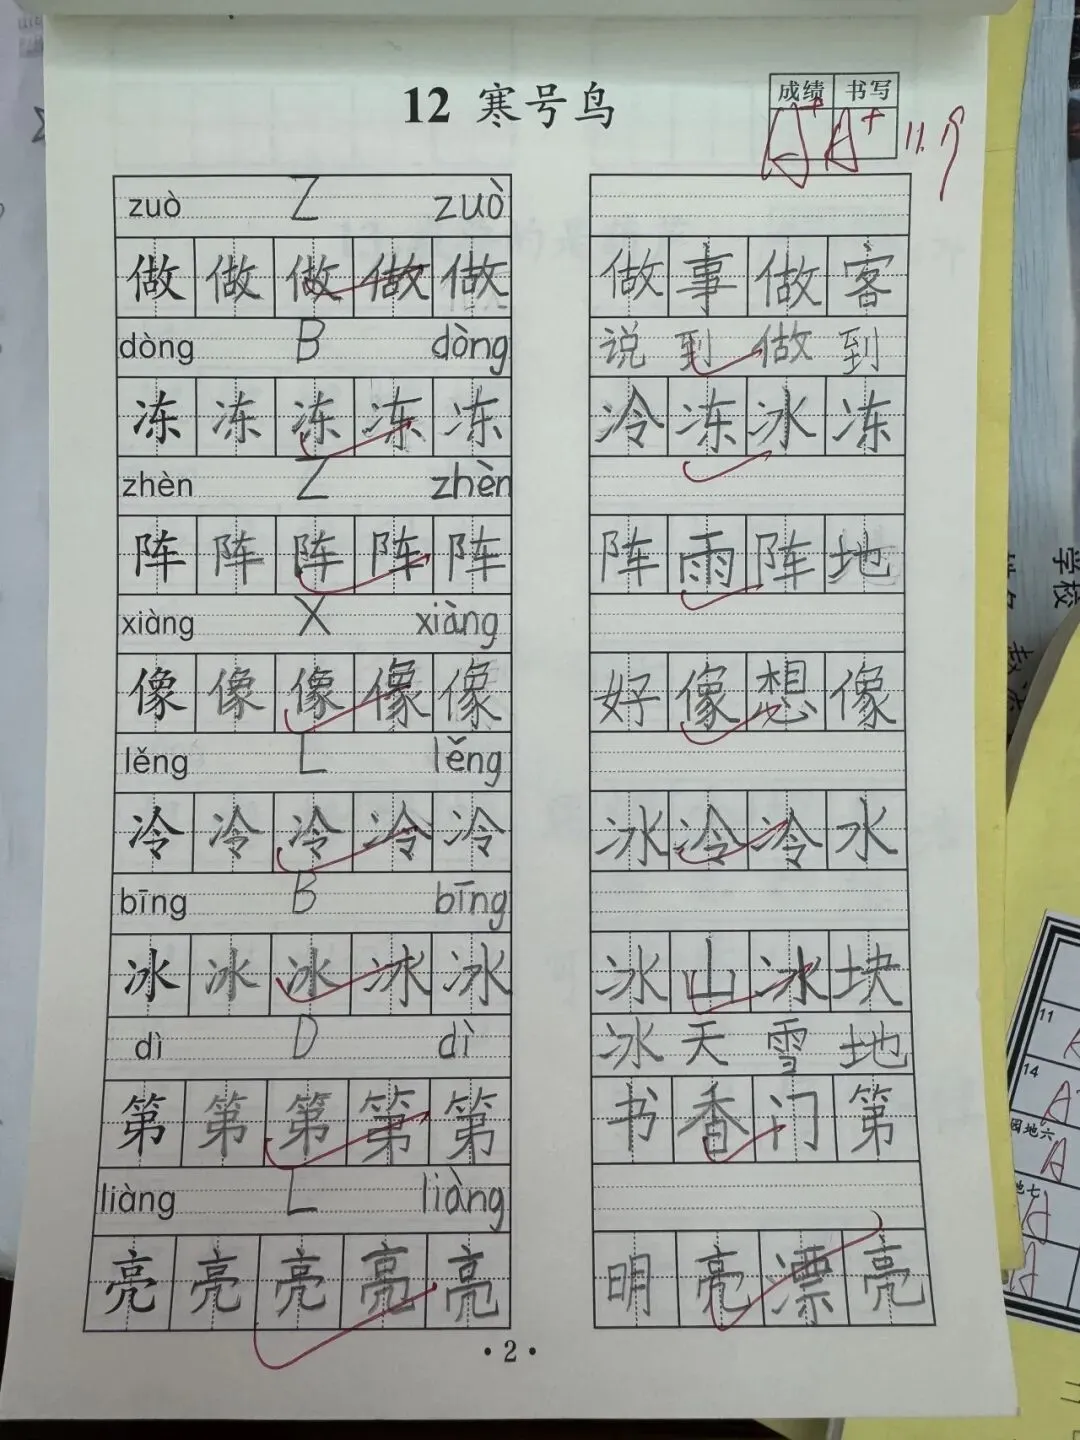 12 寒号鸟
成绩 书写
A+ A+ 11.9
zuò Z zuò
做 做 做 做 做 做 事 做 客
dòng B dòng 说 到 做 到
冻 冻 冻 冻 冻 冷 冻 冰 冻
zhèn Z zhèn
阵 阵 阵 阵 阵 阵 雨 阵 地
xiàng X xiàng
像 像 像 像 像 好 像 想 像
lěng L lěng
冷 冷 冷 冷 冷 冰 冷 冷 水
bīng B bīng
冰 冰 冰 冰 冰 冰 山 冰 块
dì D dì 冰 天 雪 地
第 第 第 第 第 书 香 门 第
liàng L liàng
亮 亮 亮 亮 亮 明 亮 漂 亮
·2·
学校
11
14
A
园地六
A
地七